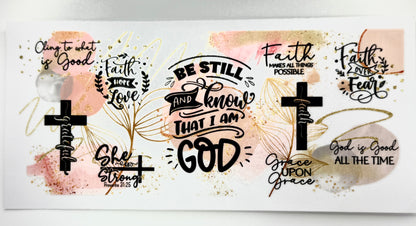 Cling to what
is Good
Faith
HOPE
Love
Grateful
She
is
Strong
Proverbs 31:25
BE STILL
AND know
THAT I AM
GOD
Faith
MAKES ALL THINGS
POSSIBLE
faith
Grace
UPON
Grace
Faith
OVER
Fear
God is Good
ALL THE TIME